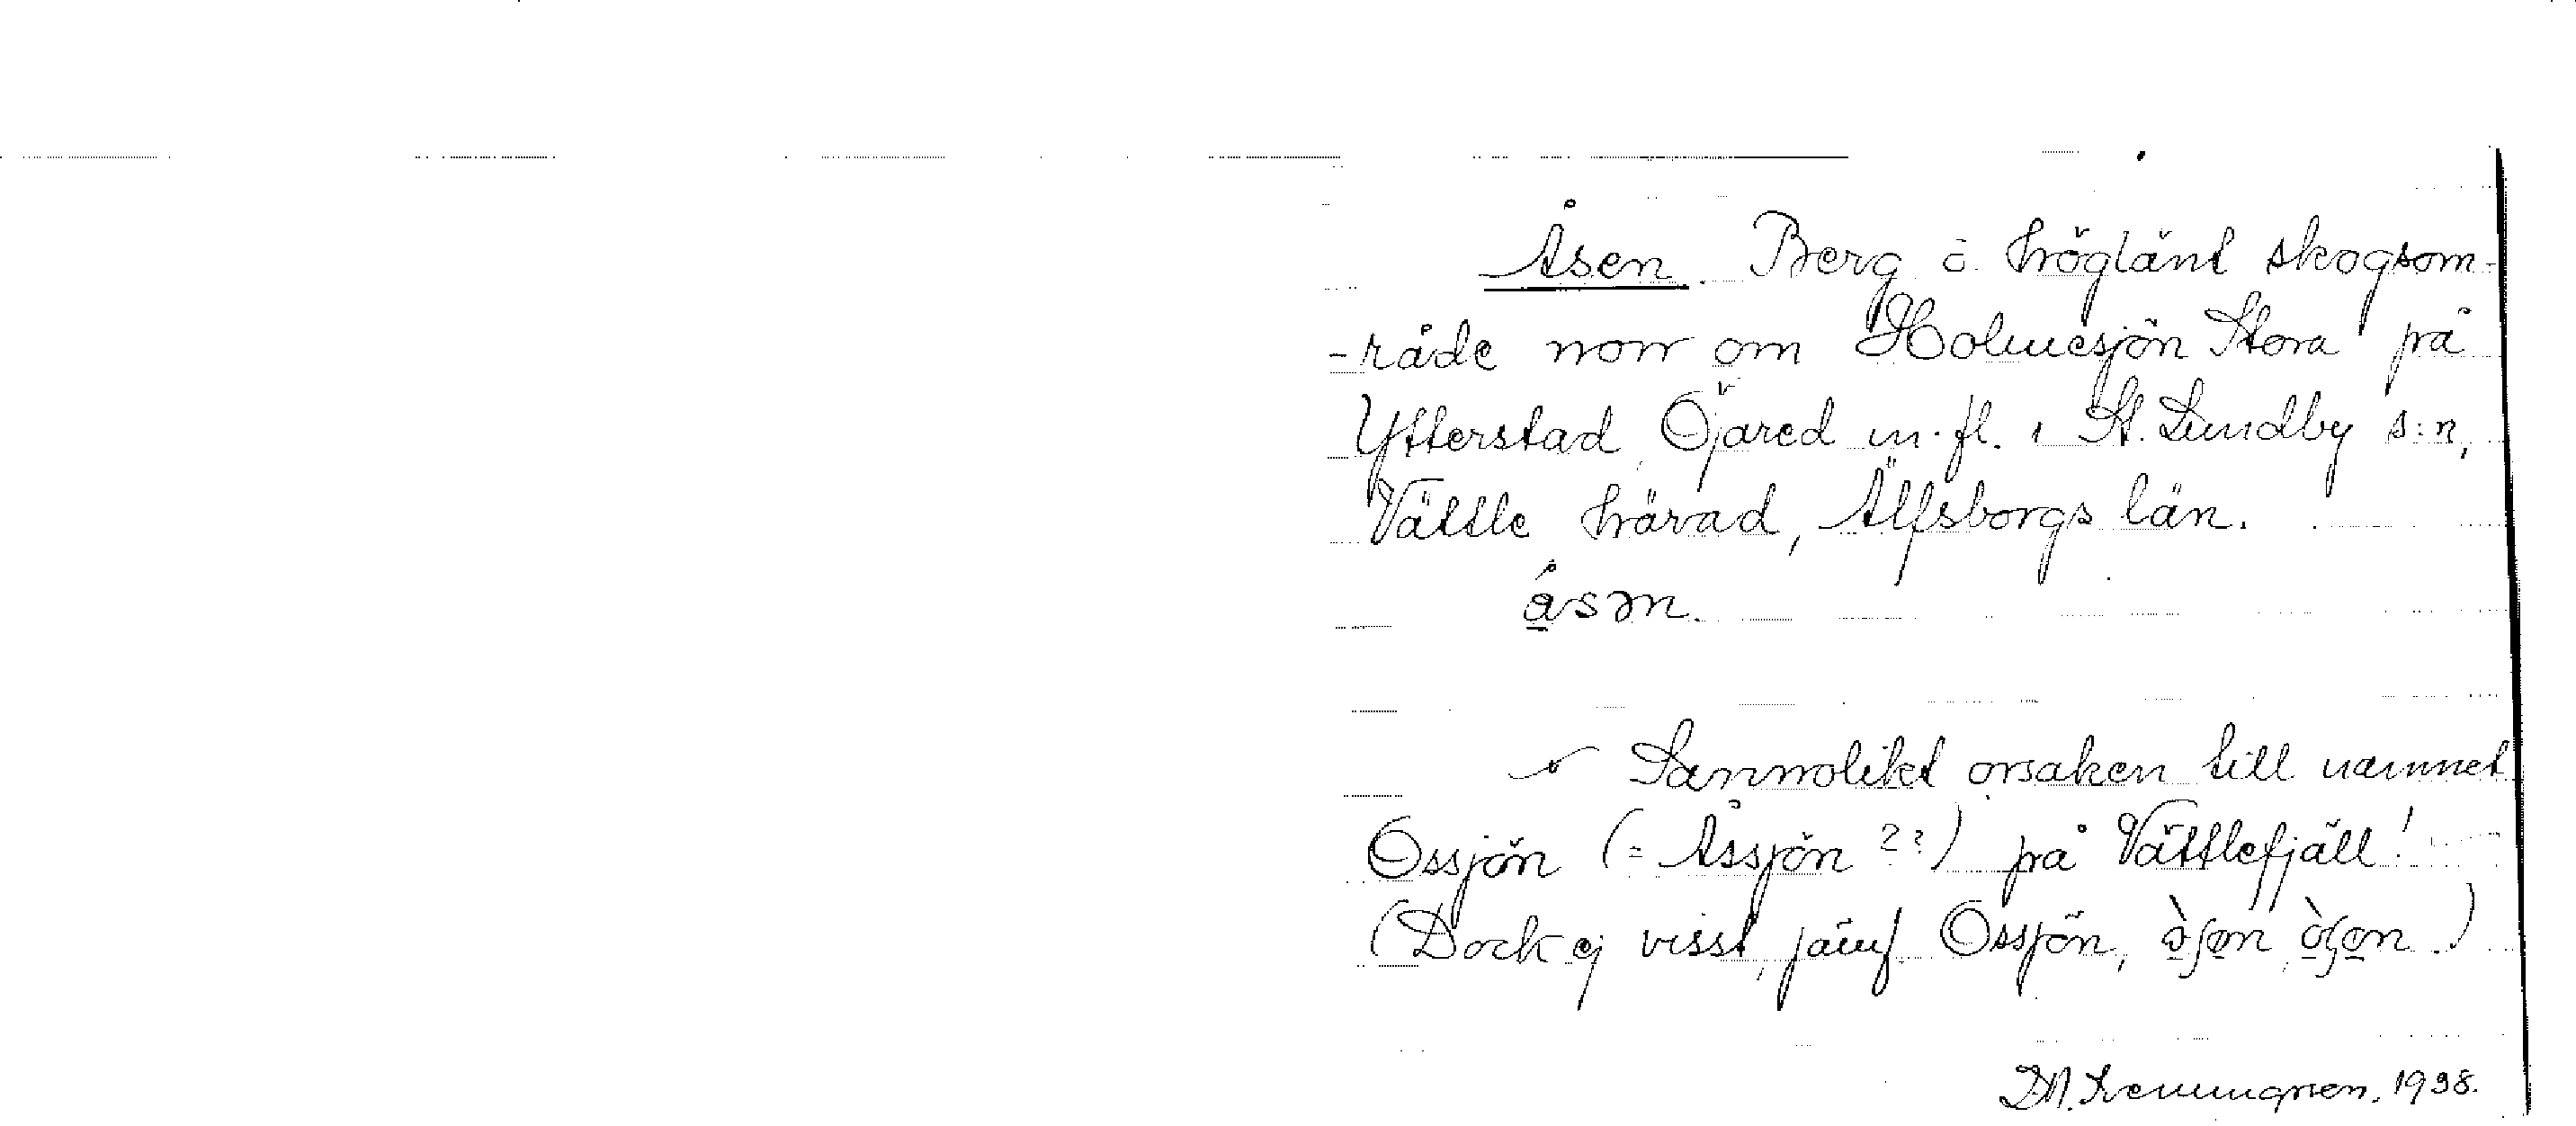 Åsen. Berg o. höglänt skogsom-
-råde norr om Holmesjön Stora på
Ytterstad, Öjared m.fl. i St. Lundby s:n,
Vättle härad, Älfsborgs län.
åsən.
Sannolikt orsaken till namnet
Ossjön (= Åssjön ??) på Vättlefjäll!
(Dock ej visst, jämf. Ossjön,
1938.